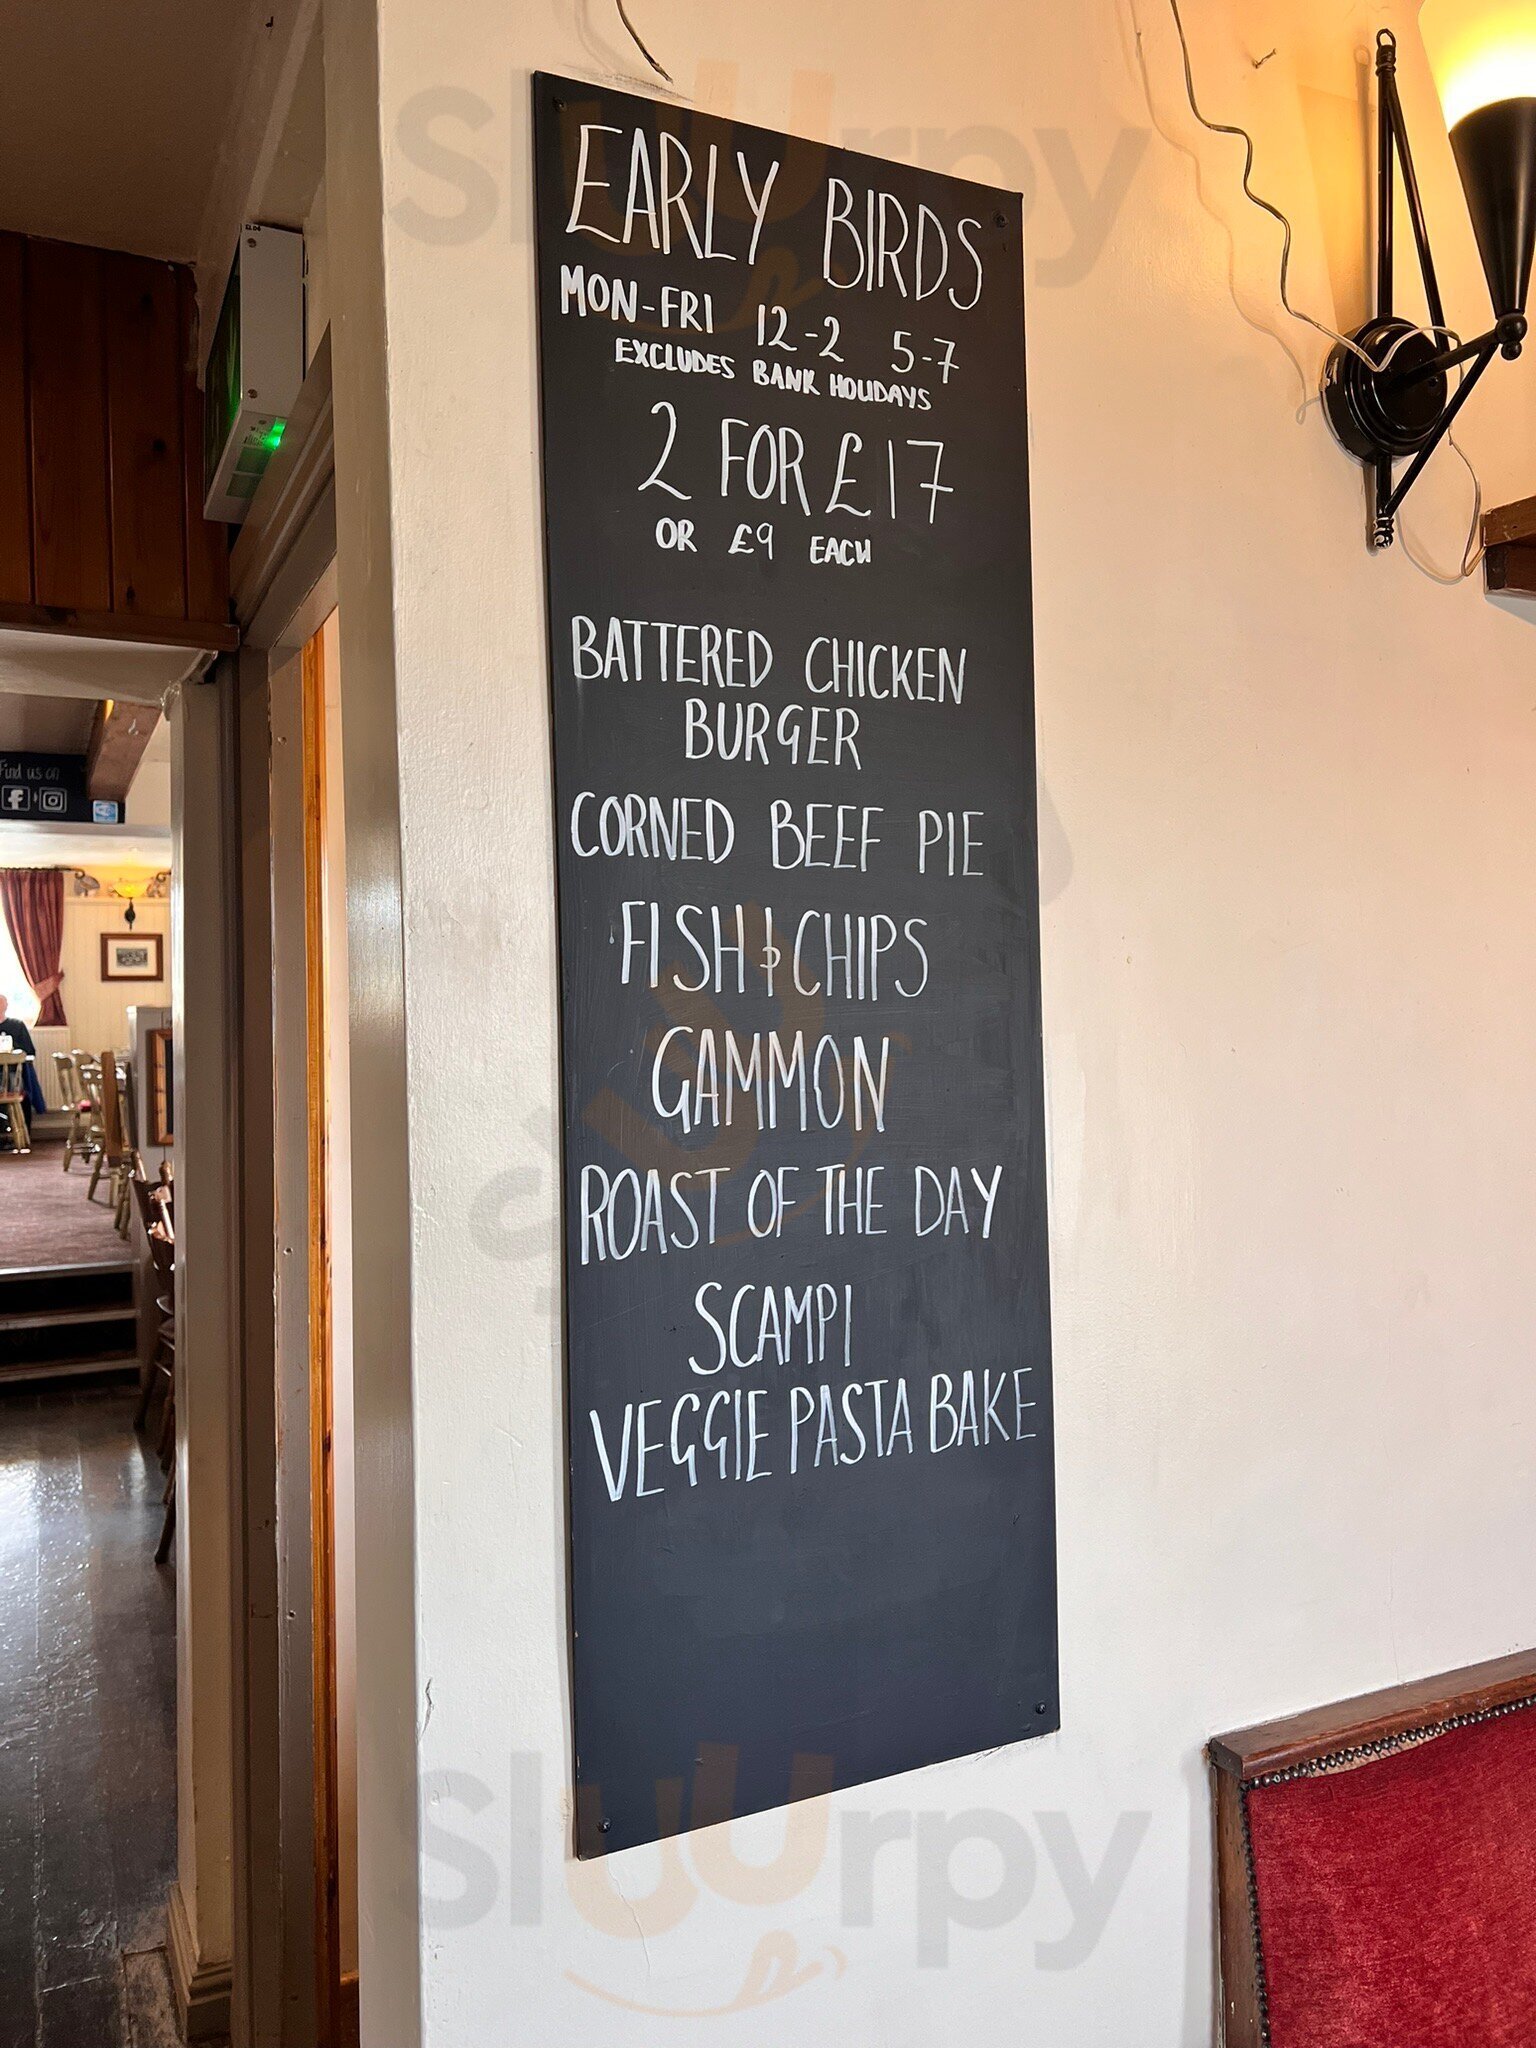 EARLY BIRDS
MON-FRI 12-2 5-7
EXCLUDES BANK HOLIDAYS
2 FOR £17
OR £9 EACH
BATTERED CHICKEN
BURGER
CORNED BEEF PIE
FISH & CHIPS
GAMMON
ROAST OF THE DAY
SCAMPI
VEGGIE PASTA BAKE
Find us on
sluurpy
sluurpy